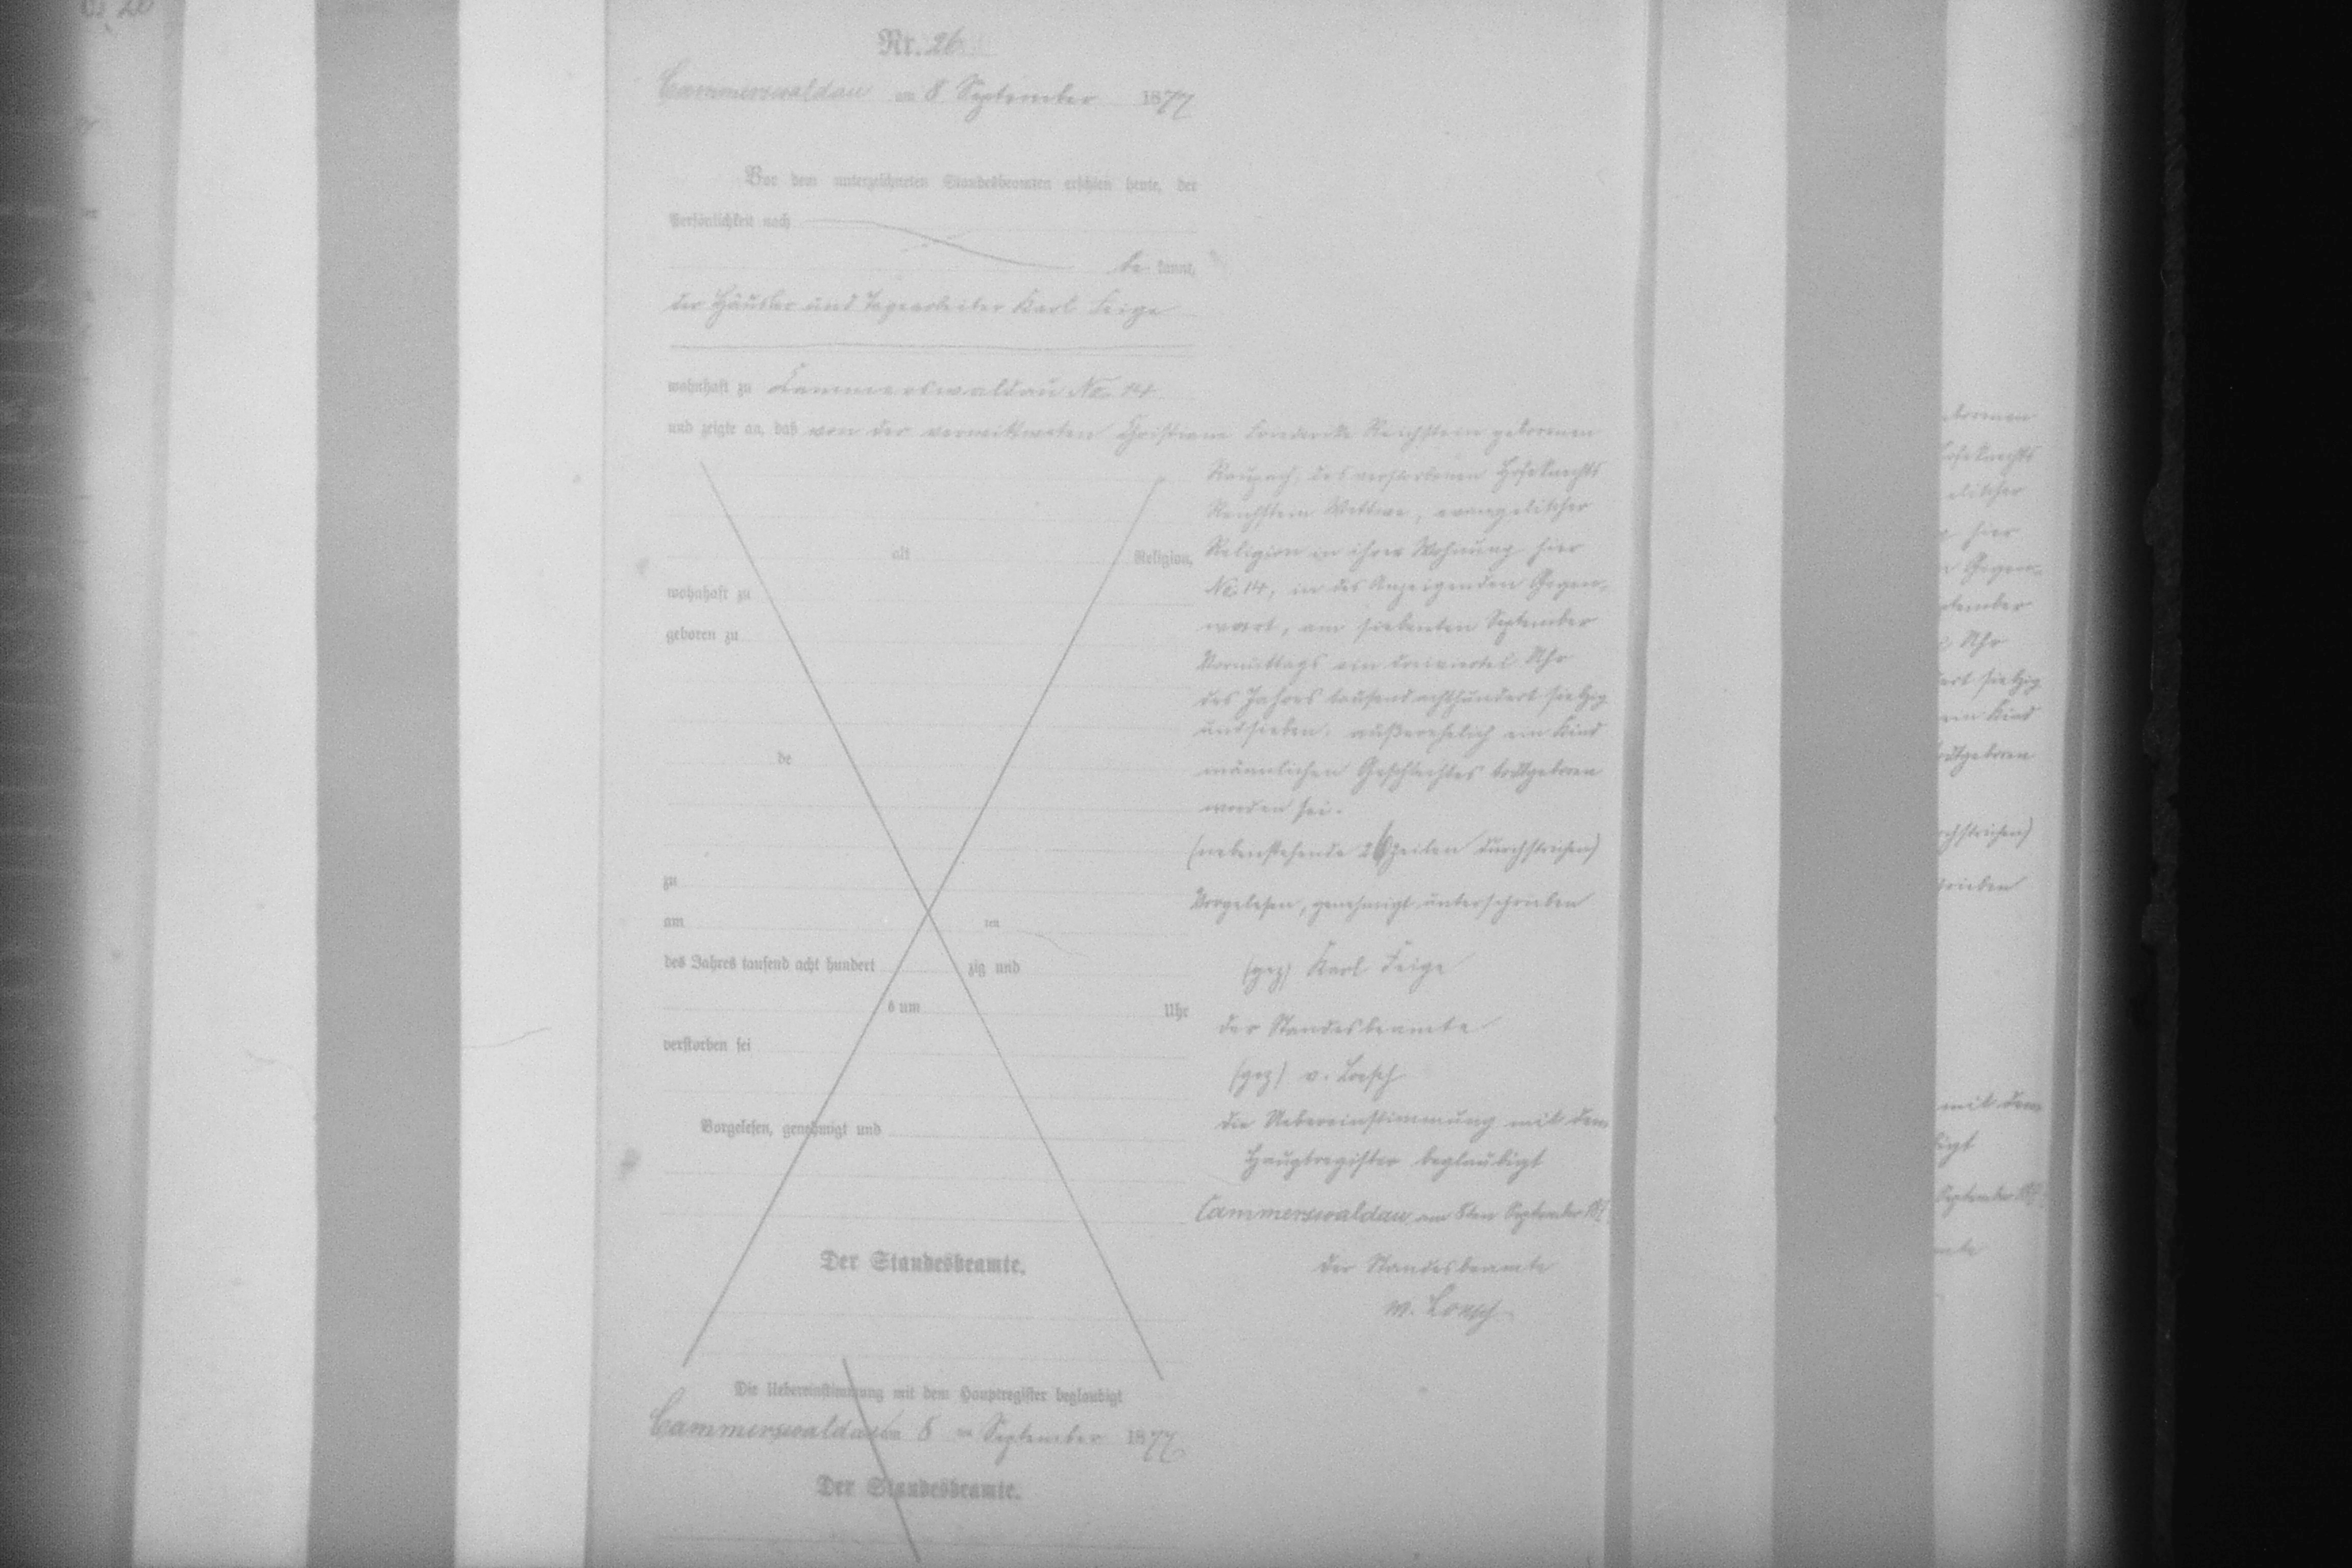 Nr. 26
Cammerswaldau am 8. September 1877
Vor dem unterzeichneten Standesbeamten erschien heute, der
Persönlichkeit nach
be kannt,
der Häusler und Tagearbeiter Karl Feige
wohnhaft zu Cammerswaldau No. 14
und zeigte an, daß von der verwittweten Christiane Friederike Reichstein geborenen
Raupach, des verstorbenen Hofeknechts
Reichstein Wittwe, evangelischer
alt Religion,
Religion in ihrer Wohnung hier
wohnhaft zu
No. 14, in des Anzeigenden Gegen-
geboren zu
wart, am siebenten September
Vormittags ein dreiviertel Uhr
des Jahres tausend achthundert siebzig
und sieben, außerehelich ein Kind
de
männlichen Geschlechtes todtgeboren
worden sei.
(nebenstehende 26 Zeilen durchstrichen)
zu
Vorgelesen, genehmigt unterschrieben
am ten
des Jahres tausend acht hundert zig und
(gez) Karl Feige
s um Uhr
der Standesbeamte
verstorben sei
(gez) v. Loesch
Vorgelesen, genehmigt und
die Uebereinstimmung mit dem
Hauptregister beglaubigt
Cammerswaldau am 8ten September
Der Standesbeamte.
der Standesbeamte
v. Loesch
Die Uebereinstimmung mit dem Hauptregister beglaubigt
Cammerswaldau am 8 ten September 1877
Der Standesbeamte.